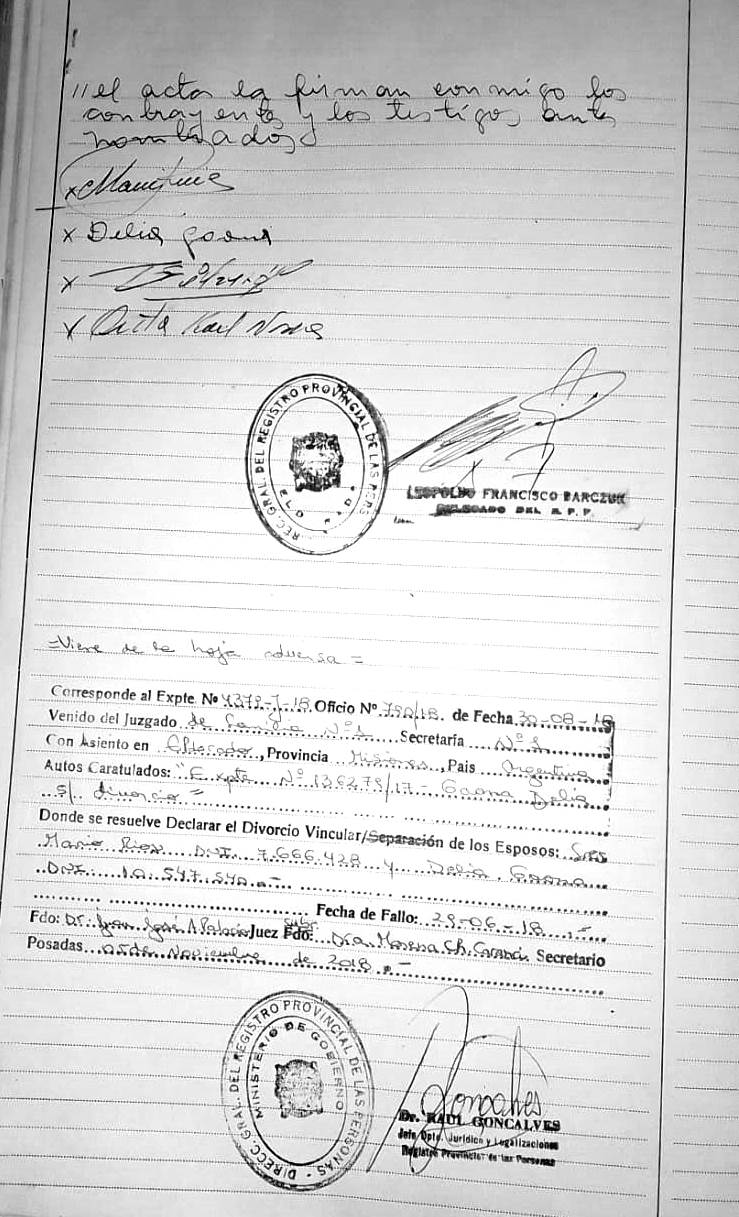 //el acta la firman conmigo los
contrayentes y los testigos antes
nombrados
x
x Delia Gaona
x
x
DIREC. GRAL. DEL REGISTRO PROVINCIAL DE LAS PERS
ELDO
LEOPOLDO FRANCISCO BARCZUK
DELEGADO DEL R. P. P.
=Viene de la hoja adversa=
Corresponde al Expte. Nº 4379-7-18. Oficio Nº 790/18. de Fecha 30-08-18
Venido del Juzgado de Familia Nº1 Secretaría Nº1
Con Asiento en Eldorado, Provincia Misiones, Pais Argentina
Autos Caratulados: "Expte Nº 136279/17 - Gaona Delia
s/. divorcio"
Donde se resuelve Declarar el Divorcio Vincular/Separación de los Esposos: Sres
Mario Rios DNI. 7.666.428 y Delia Gaona
DNI. 10.547.540.-
Fecha de Fallo: 29-06-18.-
Fdo: Dr. Juan José A. Palacio Juez Subr. Fdo: Dra. Secretario
Posadas 05 de Noviembre de 2018.-
DIRECC. GRAL. DEL REGISTRO PROVINCIAL DE LAS PERSONAS -
MINISTERIO DE GOBIERNO
Goncalves
Dr. RAUL GONCALVES
Jefe Dpto. Jurídico y Legalizaciones
Registro Provincial de las Personas